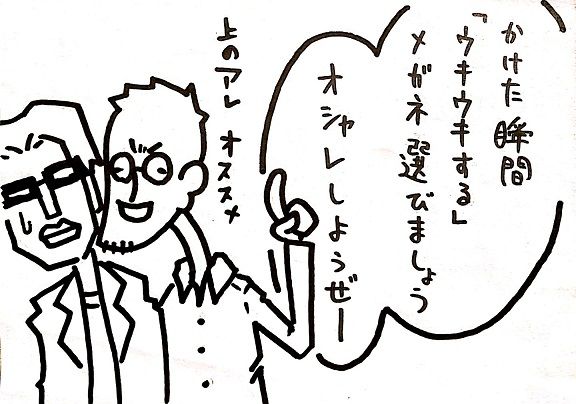 かけた瞬間
「ウキウキする」
メガネ選びましょう
オシャレしようぜー
上のアレ オススメ